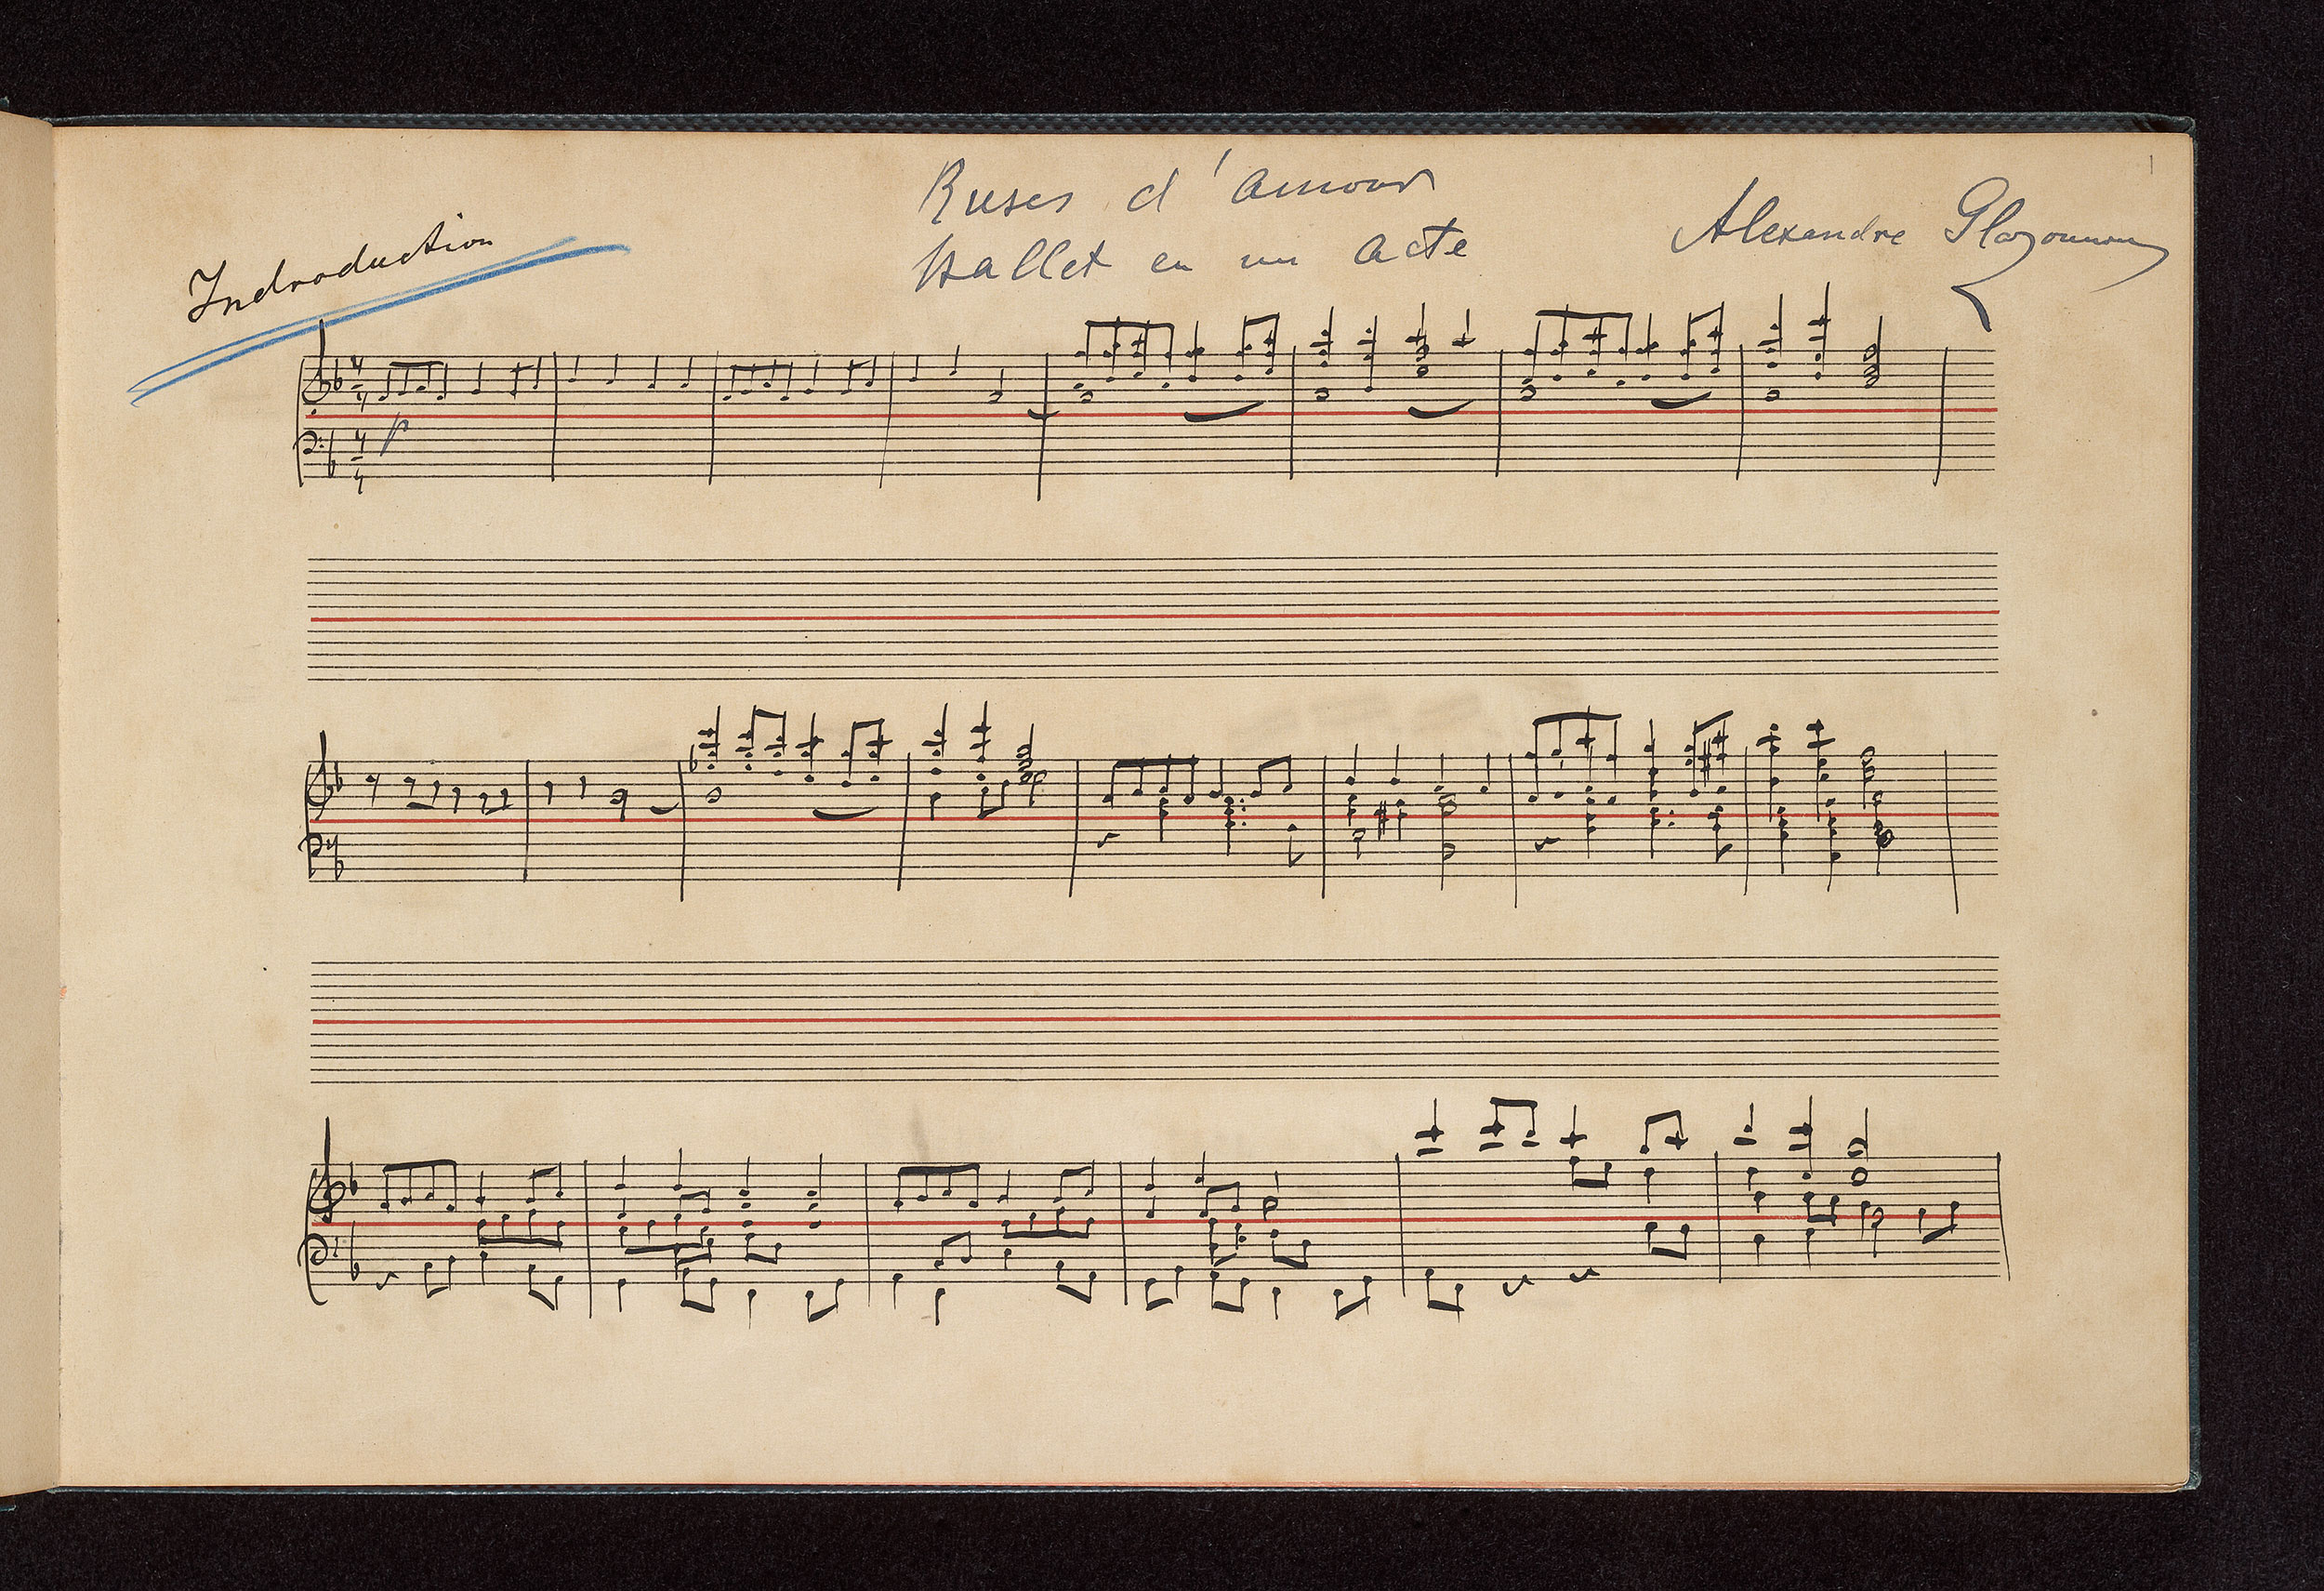 1
Ruses d'amour
Ballet en un acte
Alexandre Glazounow
Indroduction
4
4
p
4
4